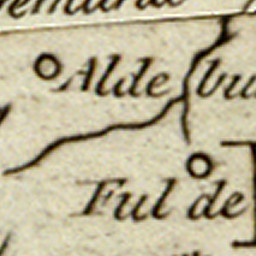 Alde bu
Ful de